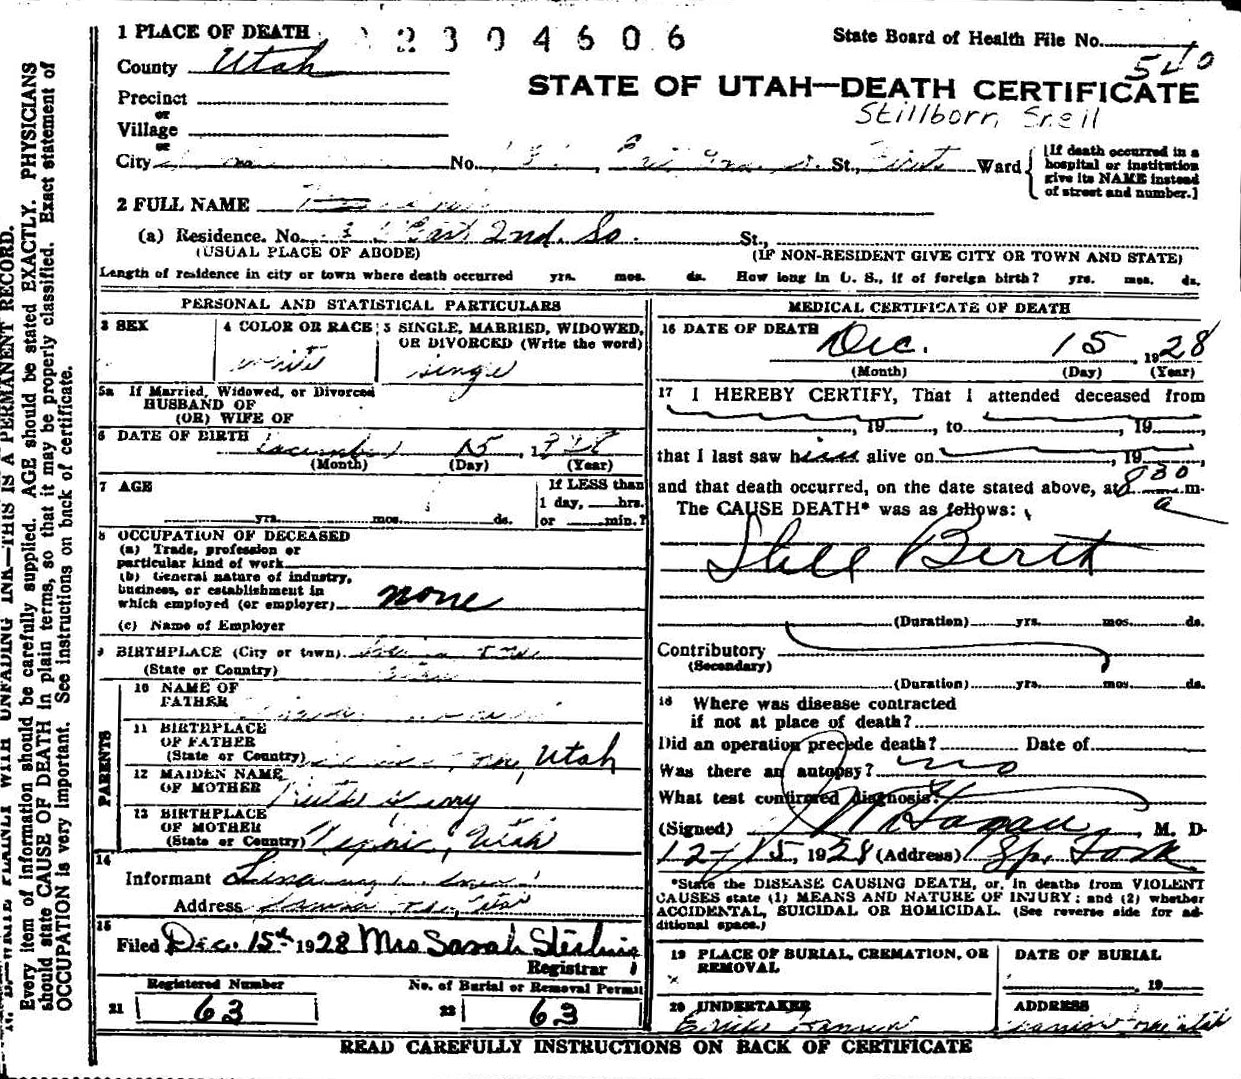 1 PLACE OF DEATH 2304606 State Board of Health File No. 540
County Utah
STATE OF UTAH—DEATH CERTIFICATE
Precinct
or
Village
Stillborn Sneil
or
City No. St., Ward
[If death occurred in a hospital or institution give its NAME instead of street and number.]
2 FULL NAME
(a) Residence. No. East 2nd. So. St.,
(USUAL PLACE OF ABODE) (IF NON-RESIDENT GIVE CITY OR TOWN AND STATE)
Length of residence in city or town where death occurred yrs. mos. ds. How long in U. S., if of foreign birth? yrs. mos. ds.
PERSONAL AND STATISTICAL PARTICULARS
3 SEX
4 COLOR OR RACE
white
5 SINGLE, MARRIED, WIDOWED, OR DIVORCED (Write the word)
single
5a If Married, Widowed, or Divorced
HUSBAND OF
(OR) WIFE OF
6 DATE OF BIRTH December 15, 1928
(Month) (Day) (Year)
7 AGE
yrs. mos. ds.
If LESS than
1 day, hrs.
or min.?
8 OCCUPATION OF DECEASED
(a) Trade, profession or
particular kind of work
(b) General nature of industry,
business, or establishment in
which employed (or employer) none
(c) Name of Employer
9 BIRTHPLACE (City or town)
(State or Country)
PARENTS
10 NAME OF
FATHER
11 BIRTHPLACE
OF FATHER
(State or Country) Utah
12 MAIDEN NAME
OF MOTHER Ruth
13 BIRTHPLACE
OF MOTHER
(State or Country) Nephi, Utah
14
Informant
Address
15
Filed Dec. 15th 1928 Mrs Sarah Sterling
Registrar
Registered Number No. of Burial or Removal Permit
21 63 22 63
MEDICAL CERTIFICATE OF DEATH
16 DATE OF DEATH
Dec. 15, 1928
(Month) (Day) (Year)
17 I HEREBY CERTIFY, That I attended deceased from
, 19 , to , 19 ,
that I last saw him alive on , 19 ,
and that death occurred, on the date stated above, at 8 30 a m.
The CAUSE DEATH* was as follows:
Still Birth
(Duration) yrs. mos. ds.
Contributory
(Secondary)
(Duration) yrs. mos. ds.
18 Where was disease contracted
if not at place of death?
Did an operation precede death? Date of
Was there an autopsy? no
What test confirmed diagnosis?
(Signed) , M. D.
12-15, 1928 (Address) Sp. Fork
*State the DISEASE CAUSING DEATH, or, in deaths from VIOLENT
CAUSES state (1) MEANS AND NATURE OF INJURY; and (2) whether
ACCIDENTAL, SUICIDAL OR HOMICIDAL. (See reverse side for ad-
ditional space.)
19 PLACE OF BURIAL, CREMATION, OR
REMOVAL
DATE OF BURIAL
, 19
20 UNDERTAKER
ADDRESS
READ CAREFULLY INSTRUCTIONS ON BACK OF CERTIFICATE
N. B.—WRITE PLAINLY WITH UNFADING INK—THIS IS A PERMANENT RECORD.
Every item of information should be carefully supplied. AGE should be stated EXACTLY. PHYSICIANS
should state CAUSE OF DEATH in plain terms, so that it may be properly classified. Exact statement of
OCCUPATION is very important. See instructions on back of certificate.